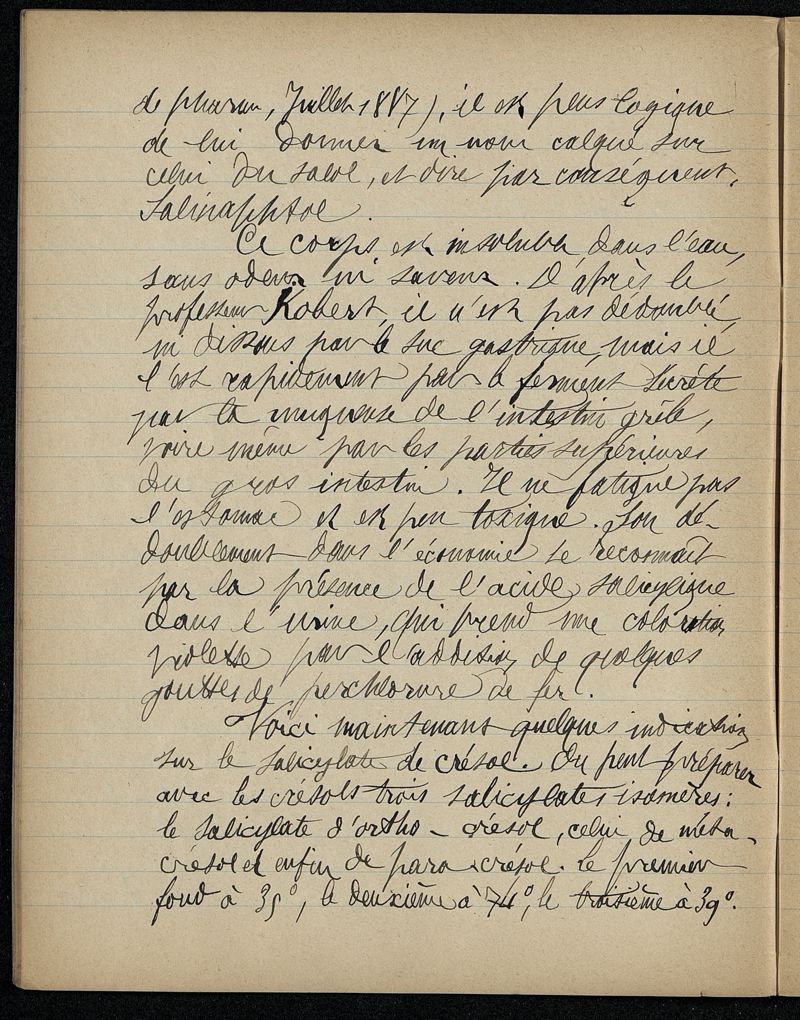 de pharm, Juillet 1887), il est plus logique
de lui donner un nom calqué sur
celui du salol, et dire par conséquent,
Salinaphtol.
Ce corps est insoluble dans l'eau,
sans odeur ni saveur. D'après le
professeur Kobert, il n'est pas dédoublé,
ni dissous par le suc gastrique, mais il
l'est rapidement par le ferment sécrété
par la muqueuse de l'intestin grêle,
voire même par les parties supérieures
du gros intestin. Il ne fatigue pas
l'estomac et est peu toxique. Son dé-
doublement dans l'économie se reconnait
par la présence de l'acide salicylique
dans l'urine, qui prend une coloration
violette par l'addition de quelques
gouttes de perchlorure de fer.
Voici maintenant quelques indications
sur le salicylate de crésol. On peut préparer
avec les crésols trois salicylates isomères:
le salicylate d'ortho-crésol, celui de méta-
crésol et enfin de para-crésol. Le premier
fond à 35°, le deuxième à 74°, le troisième à 39°.